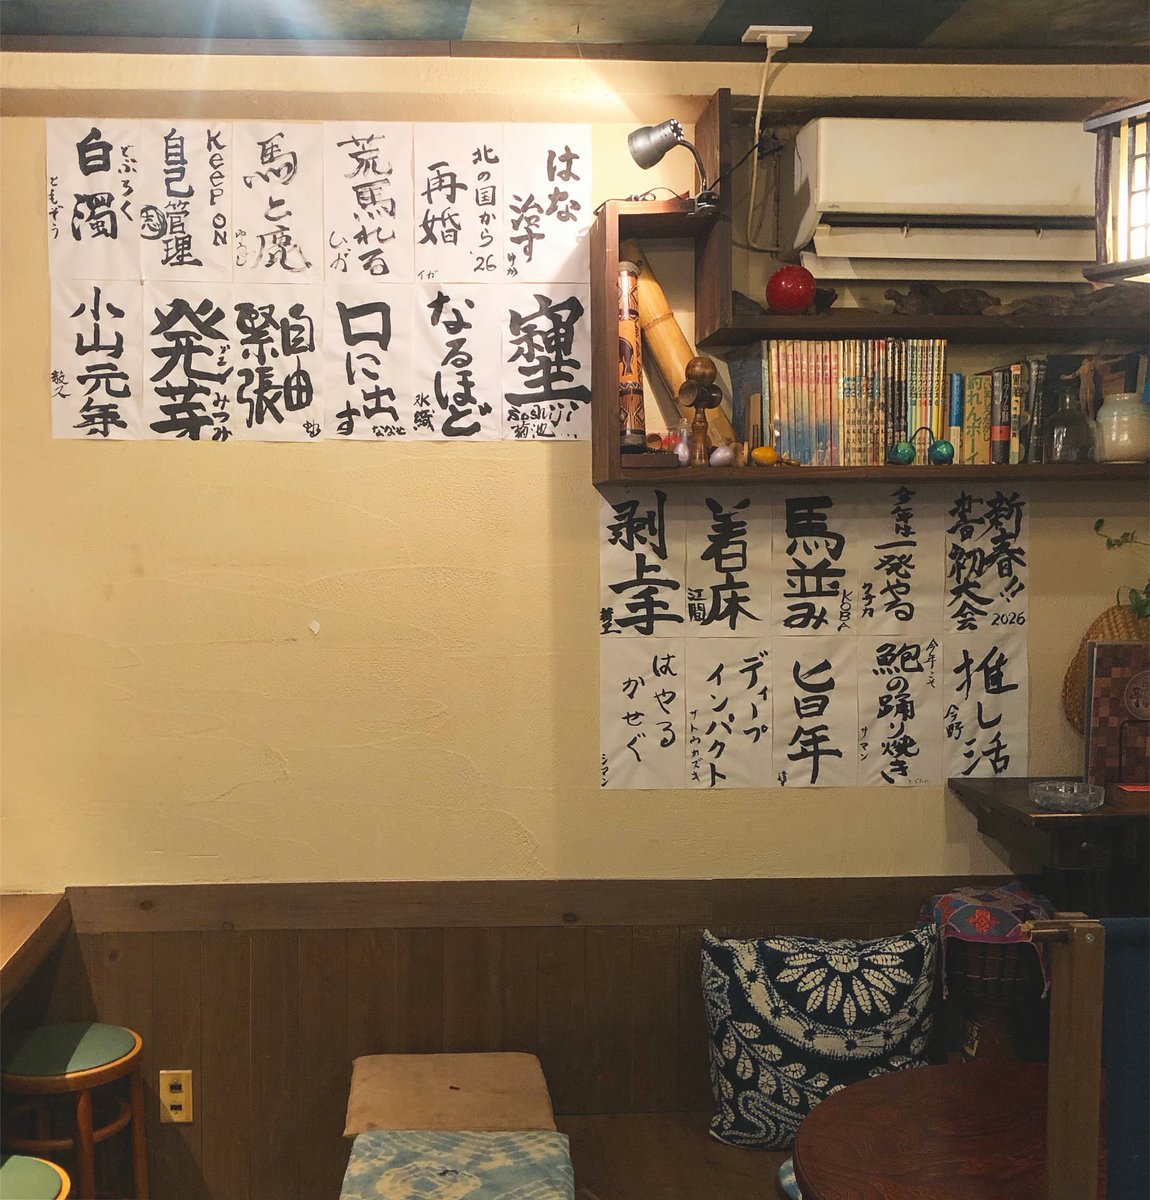 はな
治す
ゆか
北の国から'26
再婚
イガ
荒馬れる
馬と鹿
Keep ON
自己管理
どぶろく
白濁
ともぞう
なるほど
水織
口に出す
ななせ
自由
緊張
発芽
みつみ
小山元年
新春!!
書初大会
2026
今年は
一発やる
馬並み
KOBA
着床
江間
剥上手
推し活
今野
今年こそ
鮑の踊り焼き
サマン
旨年
ディープ
インパクト
サトウカズキ
はやる
かせぐ
シマン